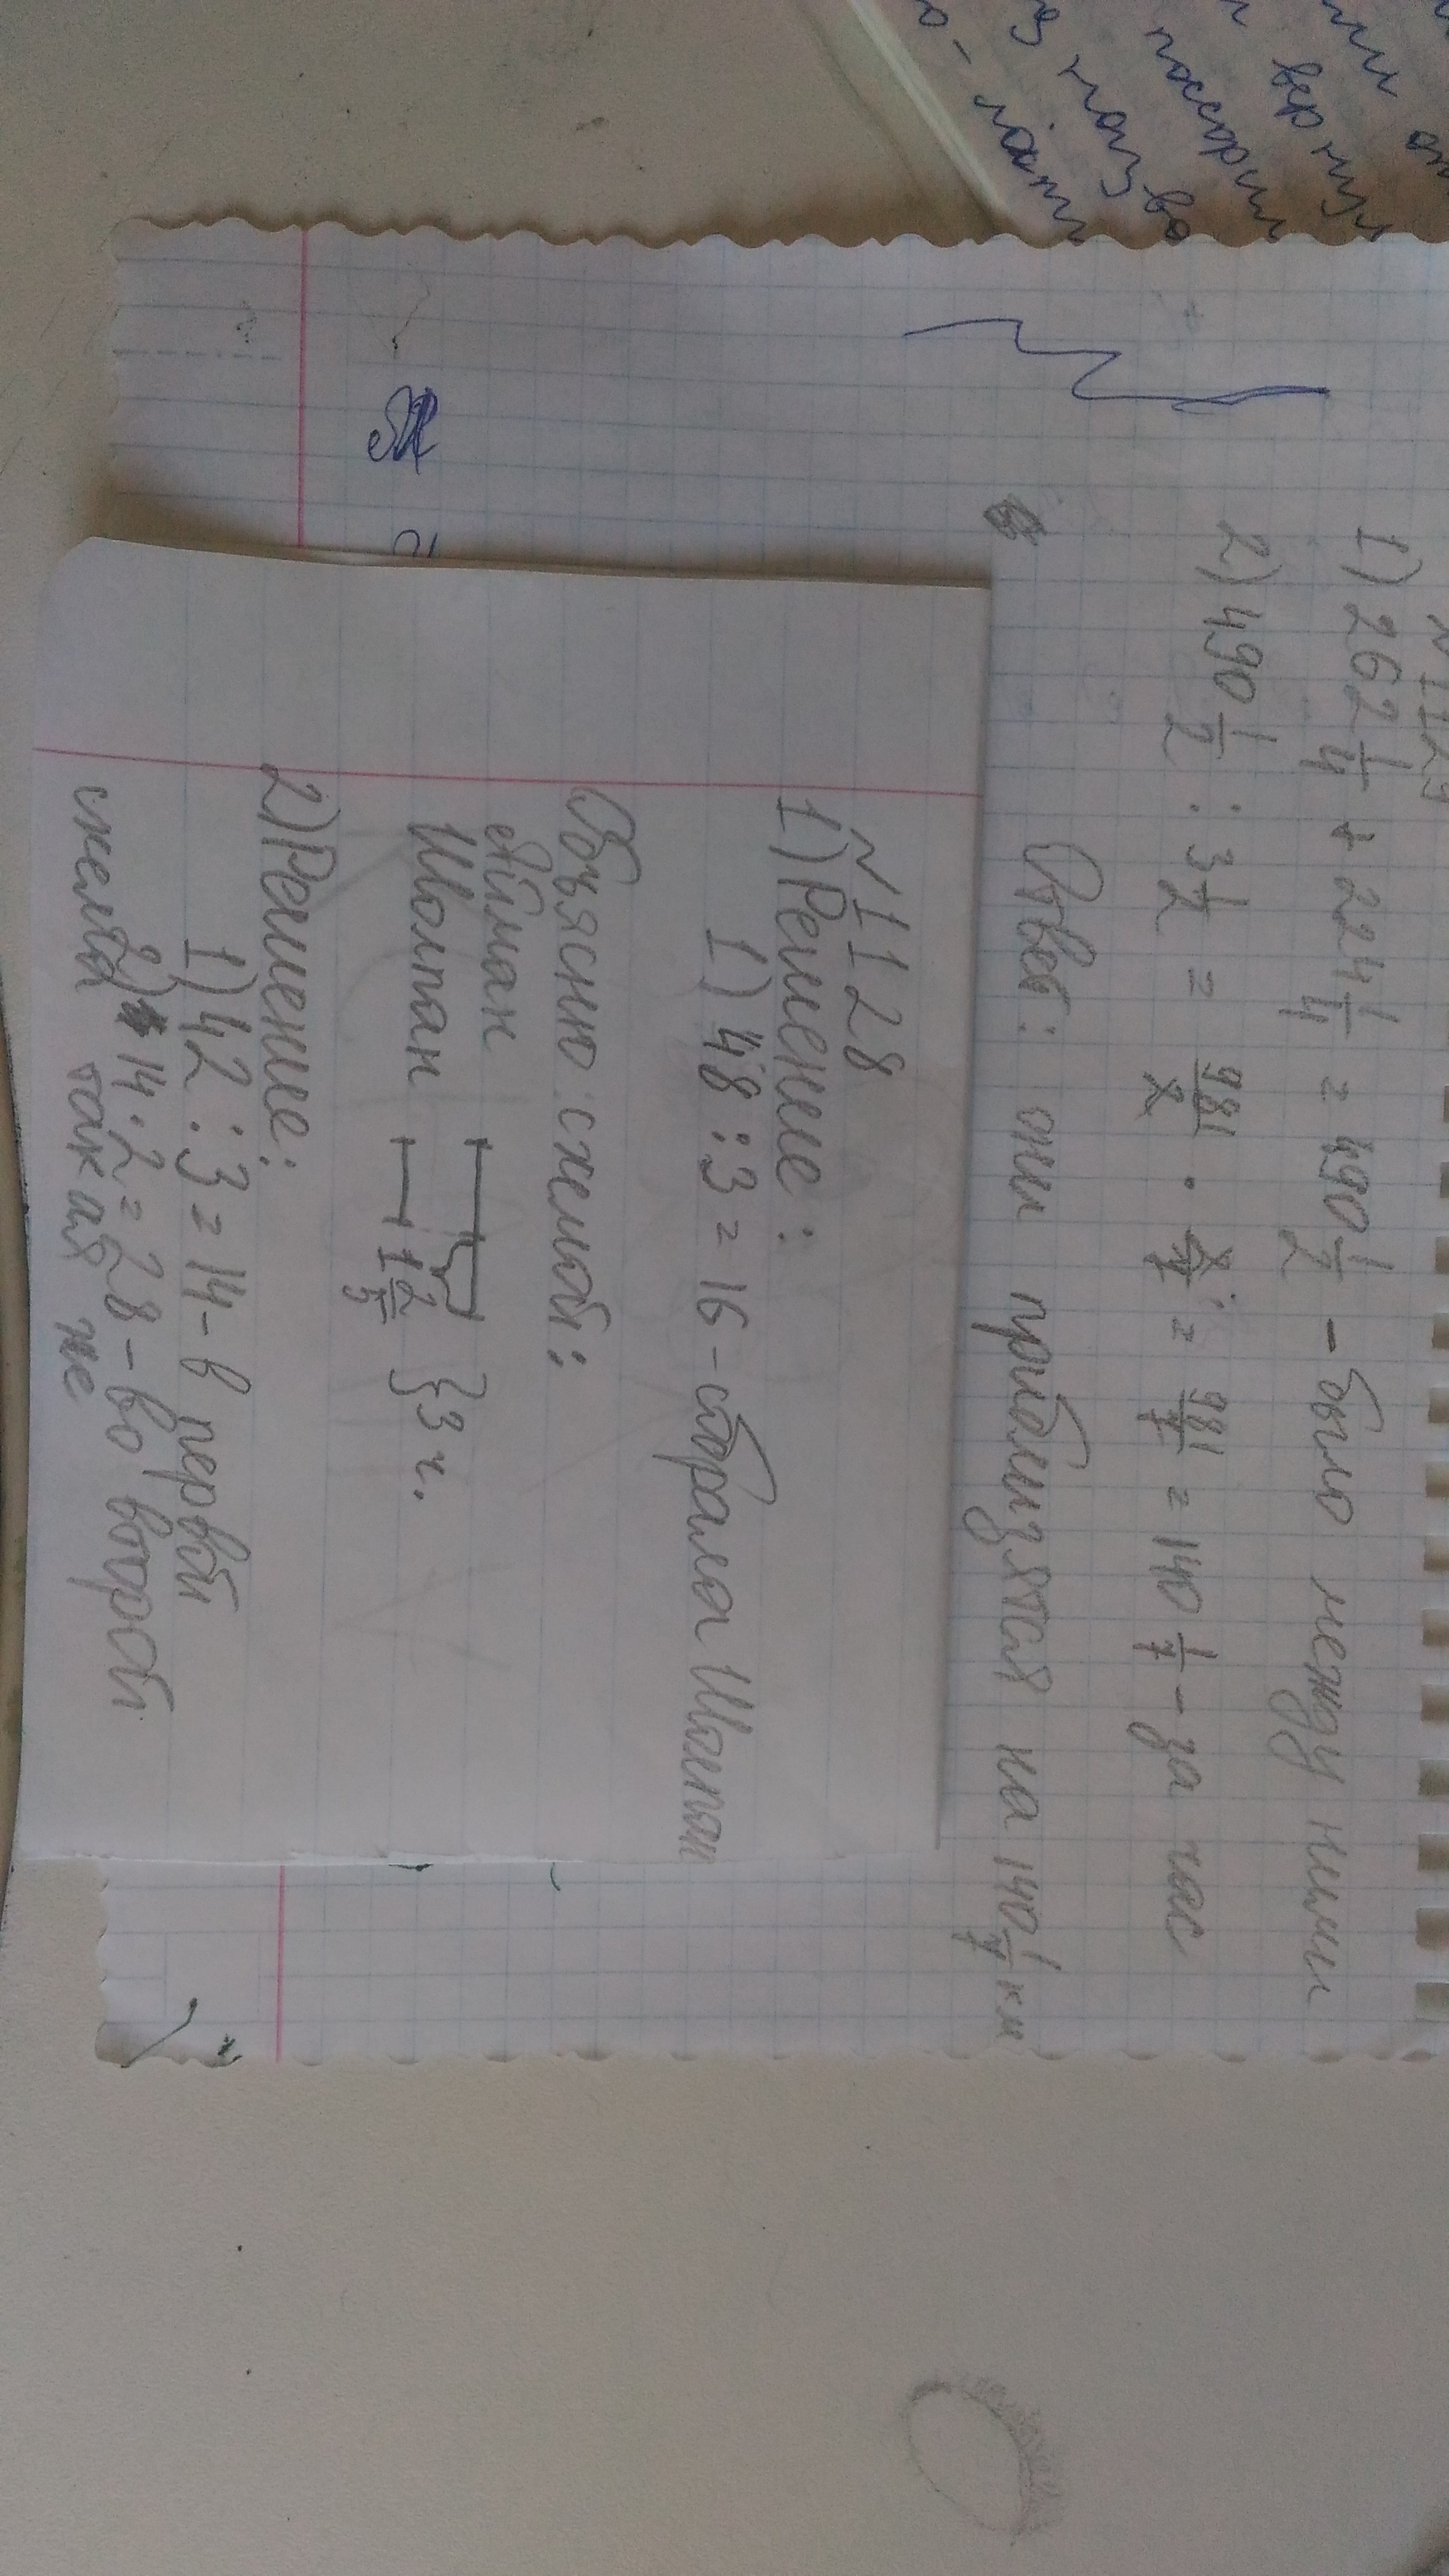 № 1129
1) 262 1/4 + 224 1/4 = 490 1/2 - было между ними
2) 490 1/2 : 3 1/2 = 981/2 · 2/7 = 981/7 = 140 1/7 - за час
Ответ: они приблизятся на 140 1/7 км
№1128
1) Решение:
1) 48 : 3 = 16 - собрала Шолпан
Объясню схемой:
Айман
Шолпан } 3 ч.
2) Решение:
1) 42 : 3 = 14 - в первой
2) 14 · 2 = 28 - во второй
схема такая же